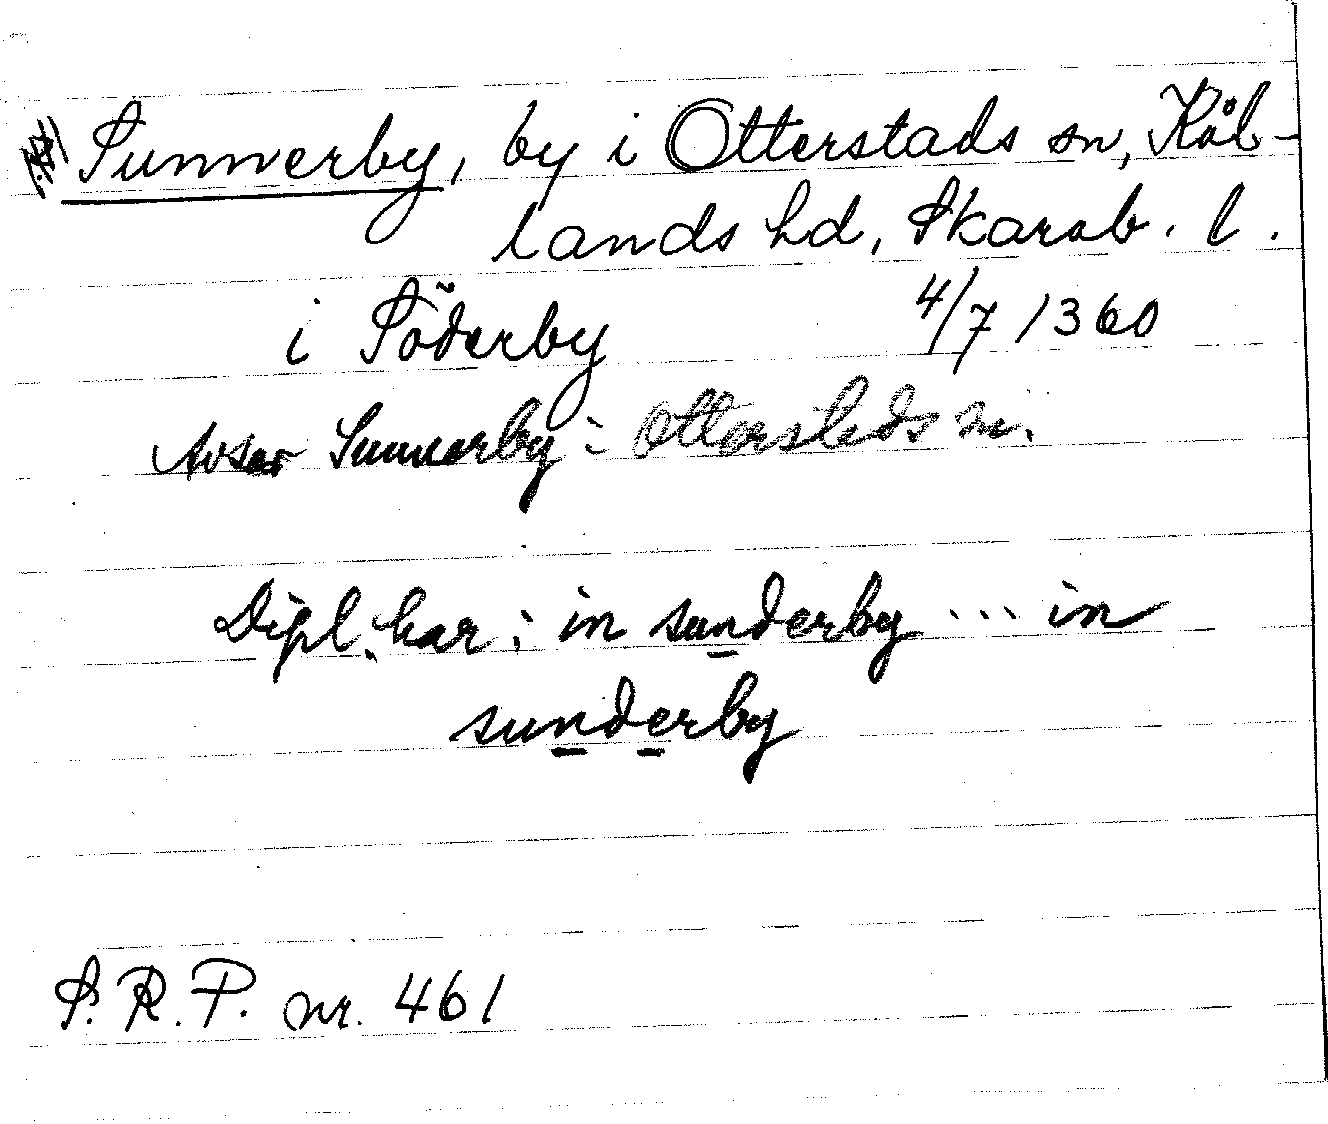 Sunnerby, by i Otterstads sn, Kål-
lands hd, Skarab. l.
i Söderby 4/7 1360
Avser Sunnerby i Otterstads sn.
Dipl. har: in sunderby ... in
sunderby
S. R. P. nr. 461